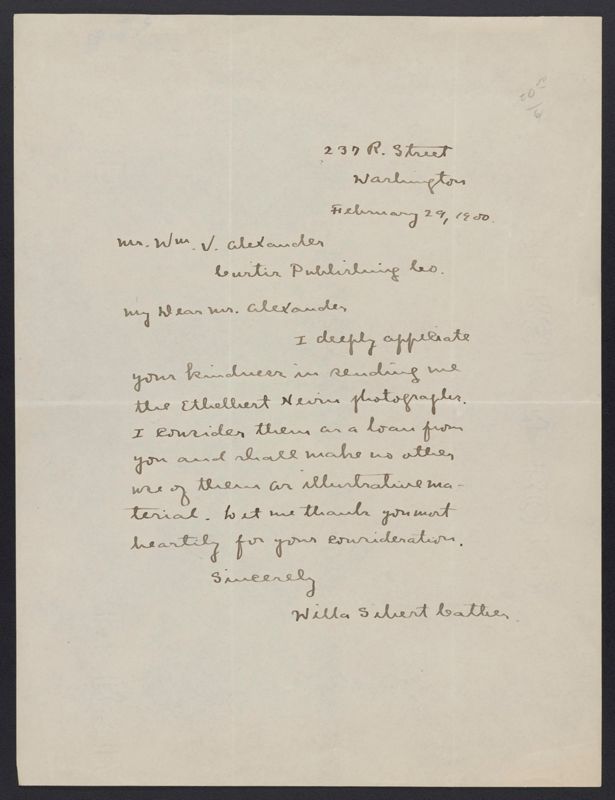 237 R. Street
Washington
February 29, 1900.
Mr. Wm. V. Alexander
Curtis Publishing Co.
My Dear Mr. Alexander
I deeply appeciate
your kindness in sending me
the Ethelbert Nevin photographs.
I consider them as a loan from
you and shall make no other
use of them as illustrative ma-
terial. Let me thank you most
heartily for your consideration.
Sincerely
Willa Sibert Cather.